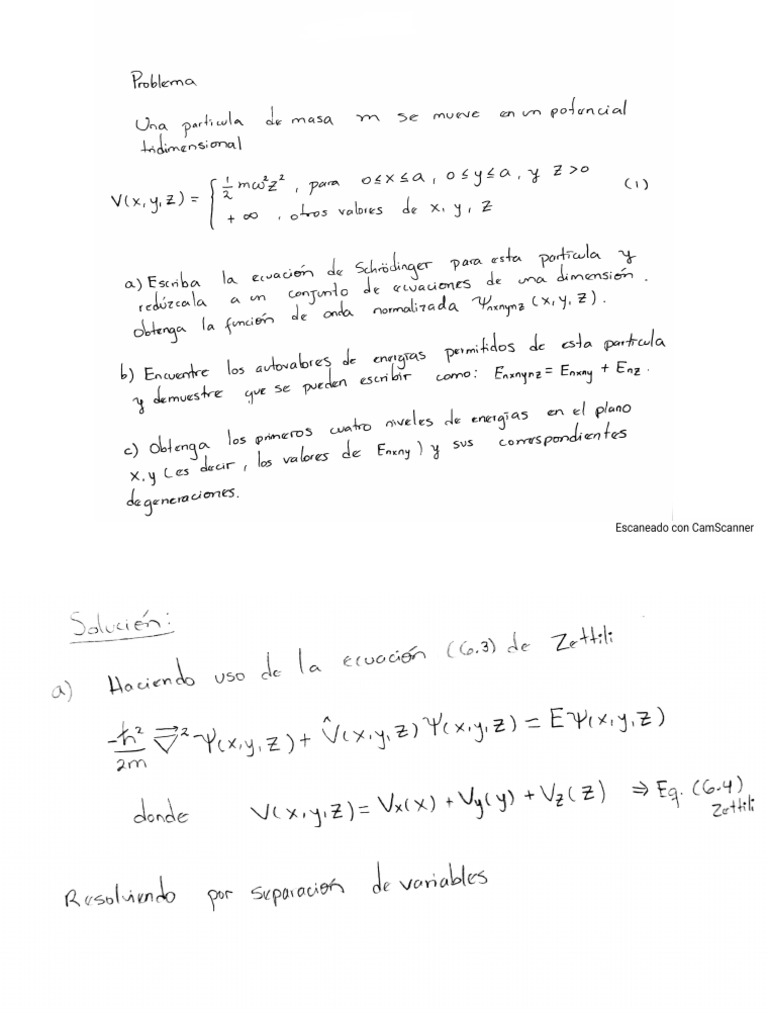 Problema
Una partícula de masa m se mueve en un potencial
tridimensional
V(x,y,z) = { 1/2 mω²z² , para 0≤x≤a, 0≤y≤a, y z>0 (1)
+∞ , otros valores de x, y, z
a) Escriba la ecuación de Schrödinger para esta partícula y
redúzcala a un conjunto de ecuaciones de una dimensión.
Obtenga la función de onda normalizada Ψnxnynz (x, y, z).
b) Encuentre los autovalores de energías permitidos de esta partícula
y demuestre que se pueden escribir como: Enxnynz = Enxny + Enz.
c) Obtenga los primeros cuatro niveles de energías en el plano
x.y (es decir, los valores de Enxny) y sus correspondientes
degeneraciones.
Escaneado con CamScanner
Solución:
a) Haciendo uso de la ecuación (6.3) de Zettili
-ħ²/2m ∇⃗² Ψ(x,y,z) + V̂(x,y,z) Ψ(x,y,z) = E Ψ(x,y,z)
donde V(x,y,z) = Vx(x) + Vy(y) + Vz(z) ⇒ Eq. (6.4)
Zettili
Resolviendo por separación de variables